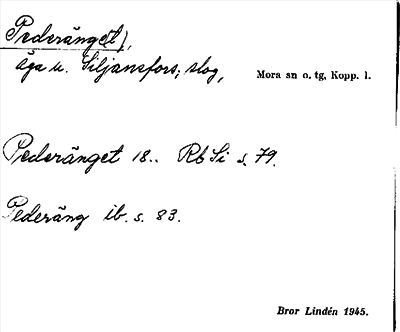 Pederänget),
äga u. Siljansfors; slog,
Mora sn o. tg, Kopp. l.
Pederänget 18.. Rb Si s. 79.
Pederäng ib. s. 83.
Bror Lindén 1945.